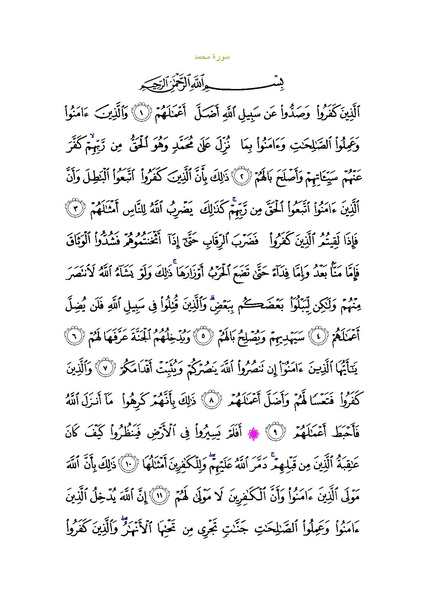 سورة محمد
بِسْمِ اللَّهِ الرَّحْمَٰنِ الرَّحِيمِ
الَّذِينَ كَفَرُوا۟ وَصَدُّوا۟ عَن سَبِيلِ اللَّهِ أَضَلَّ أَعْمَٰلَهُمْ ١ وَالَّذِينَ ءَامَنُوا۟
وَعَمِلُوا۟ الصَّٰلِحَٰتِ وَءَامَنُوا۟ بِمَا نُزِّلَ عَلَىٰ مُحَمَّدٍ وَهُوَ الْحَقُّ مِن رَّبِّهِمْ ۙ كَفَّرَ
عَنْهُمْ سَيِّـَٔاتِهِمْ وَأَصْلَحَ بَالَهُمْ ٢ ذَٰلِكَ بِأَنَّ الَّذِينَ كَفَرُوا۟ اتَّبَعُوا۟ الْبَٰطِلَ وَأَنَّ
الَّذِينَ ءَامَنُوا۟ اتَّبَعُوا۟ الْحَقَّ مِن رَّبِّهِمْ ۚ كَذَٰلِكَ يَضْرِبُ اللَّهُ لِلنَّاسِ أَمْثَٰلَهُمْ ٣
فَإِذَا لَقِيتُمُ الَّذِينَ كَفَرُوا۟ فَضَرْبَ الرِّقَابِ حَتَّىٰٓ إِذَآ أَثْخَنتُمُوهُمْ فَشُدُّوا۟ الْوَثَاقَ
فَإِمَّا مَنًّۢا بَعْدُ وَإِمَّا فِدَآءً حَتَّىٰ تَضَعَ الْحَرْبُ أَوْزَارَهَا ۚ ذَٰلِكَ وَلَوْ يَشَآءُ اللَّهُ لَانتَصَرَ
مِنْهُمْ وَلَٰكِن لِّيَبْلُوَا۟ بَعْضَكُم بِبَعْضٍ ۗ وَالَّذِينَ قُتِلُوا۟ فِى سَبِيلِ اللَّهِ فَلَن يُضِلَّ
أَعْمَٰلَهُمْ ٤ سَيَهْدِيهِمْ وَيُصْلِحُ بَالَهُمْ ٥ وَيُدْخِلُهُمُ الْجَنَّةَ عَرَّفَهَا لَهُمْ ٦
يَٰٓأَيُّهَا الَّذِينَ ءَامَنُوٓا۟ إِن تَنصُرُوا۟ اللَّهَ يَنصُرْكُمْ وَيُثَبِّتْ أَقْدَامَكُمْ ٧ وَالَّذِينَ
كَفَرُوا۟ فَتَعْسًا لَّهُمْ وَأَضَلَّ أَعْمَٰلَهُمْ ٨ ذَٰلِكَ بِأَنَّهُمْ كَرِهُوا۟ مَآ أَنزَلَ اللَّهُ
فَأَحْبَطَ أَعْمَٰلَهُمْ ٩ ۞ أَفَلَمْ يَسِيرُوا۟ فِى الْأَرْضِ فَيَنظُرُوا۟ كَيْفَ كَانَ
عَٰقِبَةُ الَّذِينَ مِن قَبْلِهِمْ ۚ دَمَّرَ اللَّهُ عَلَيْهِمْ ۖ وَلِلْكَٰفِرِينَ أَمْثَٰلُهَا ١٠ ذَٰلِكَ بِأَنَّ اللَّهَ
مَوْلَى الَّذِينَ ءَامَنُوا۟ وَأَنَّ الْكَٰفِرِينَ لَا مَوْلَىٰ لَهُمْ ١١ إِنَّ اللَّهَ يُدْخِلُ الَّذِينَ
ءَامَنُوا۟ وَعَمِلُوا۟ الصَّٰلِحَٰتِ جَنَّٰتٍ تَجْرِى مِن تَحْتِهَا الْأَنْهَٰرُ ۖ وَالَّذِينَ كَفَرُوا۟